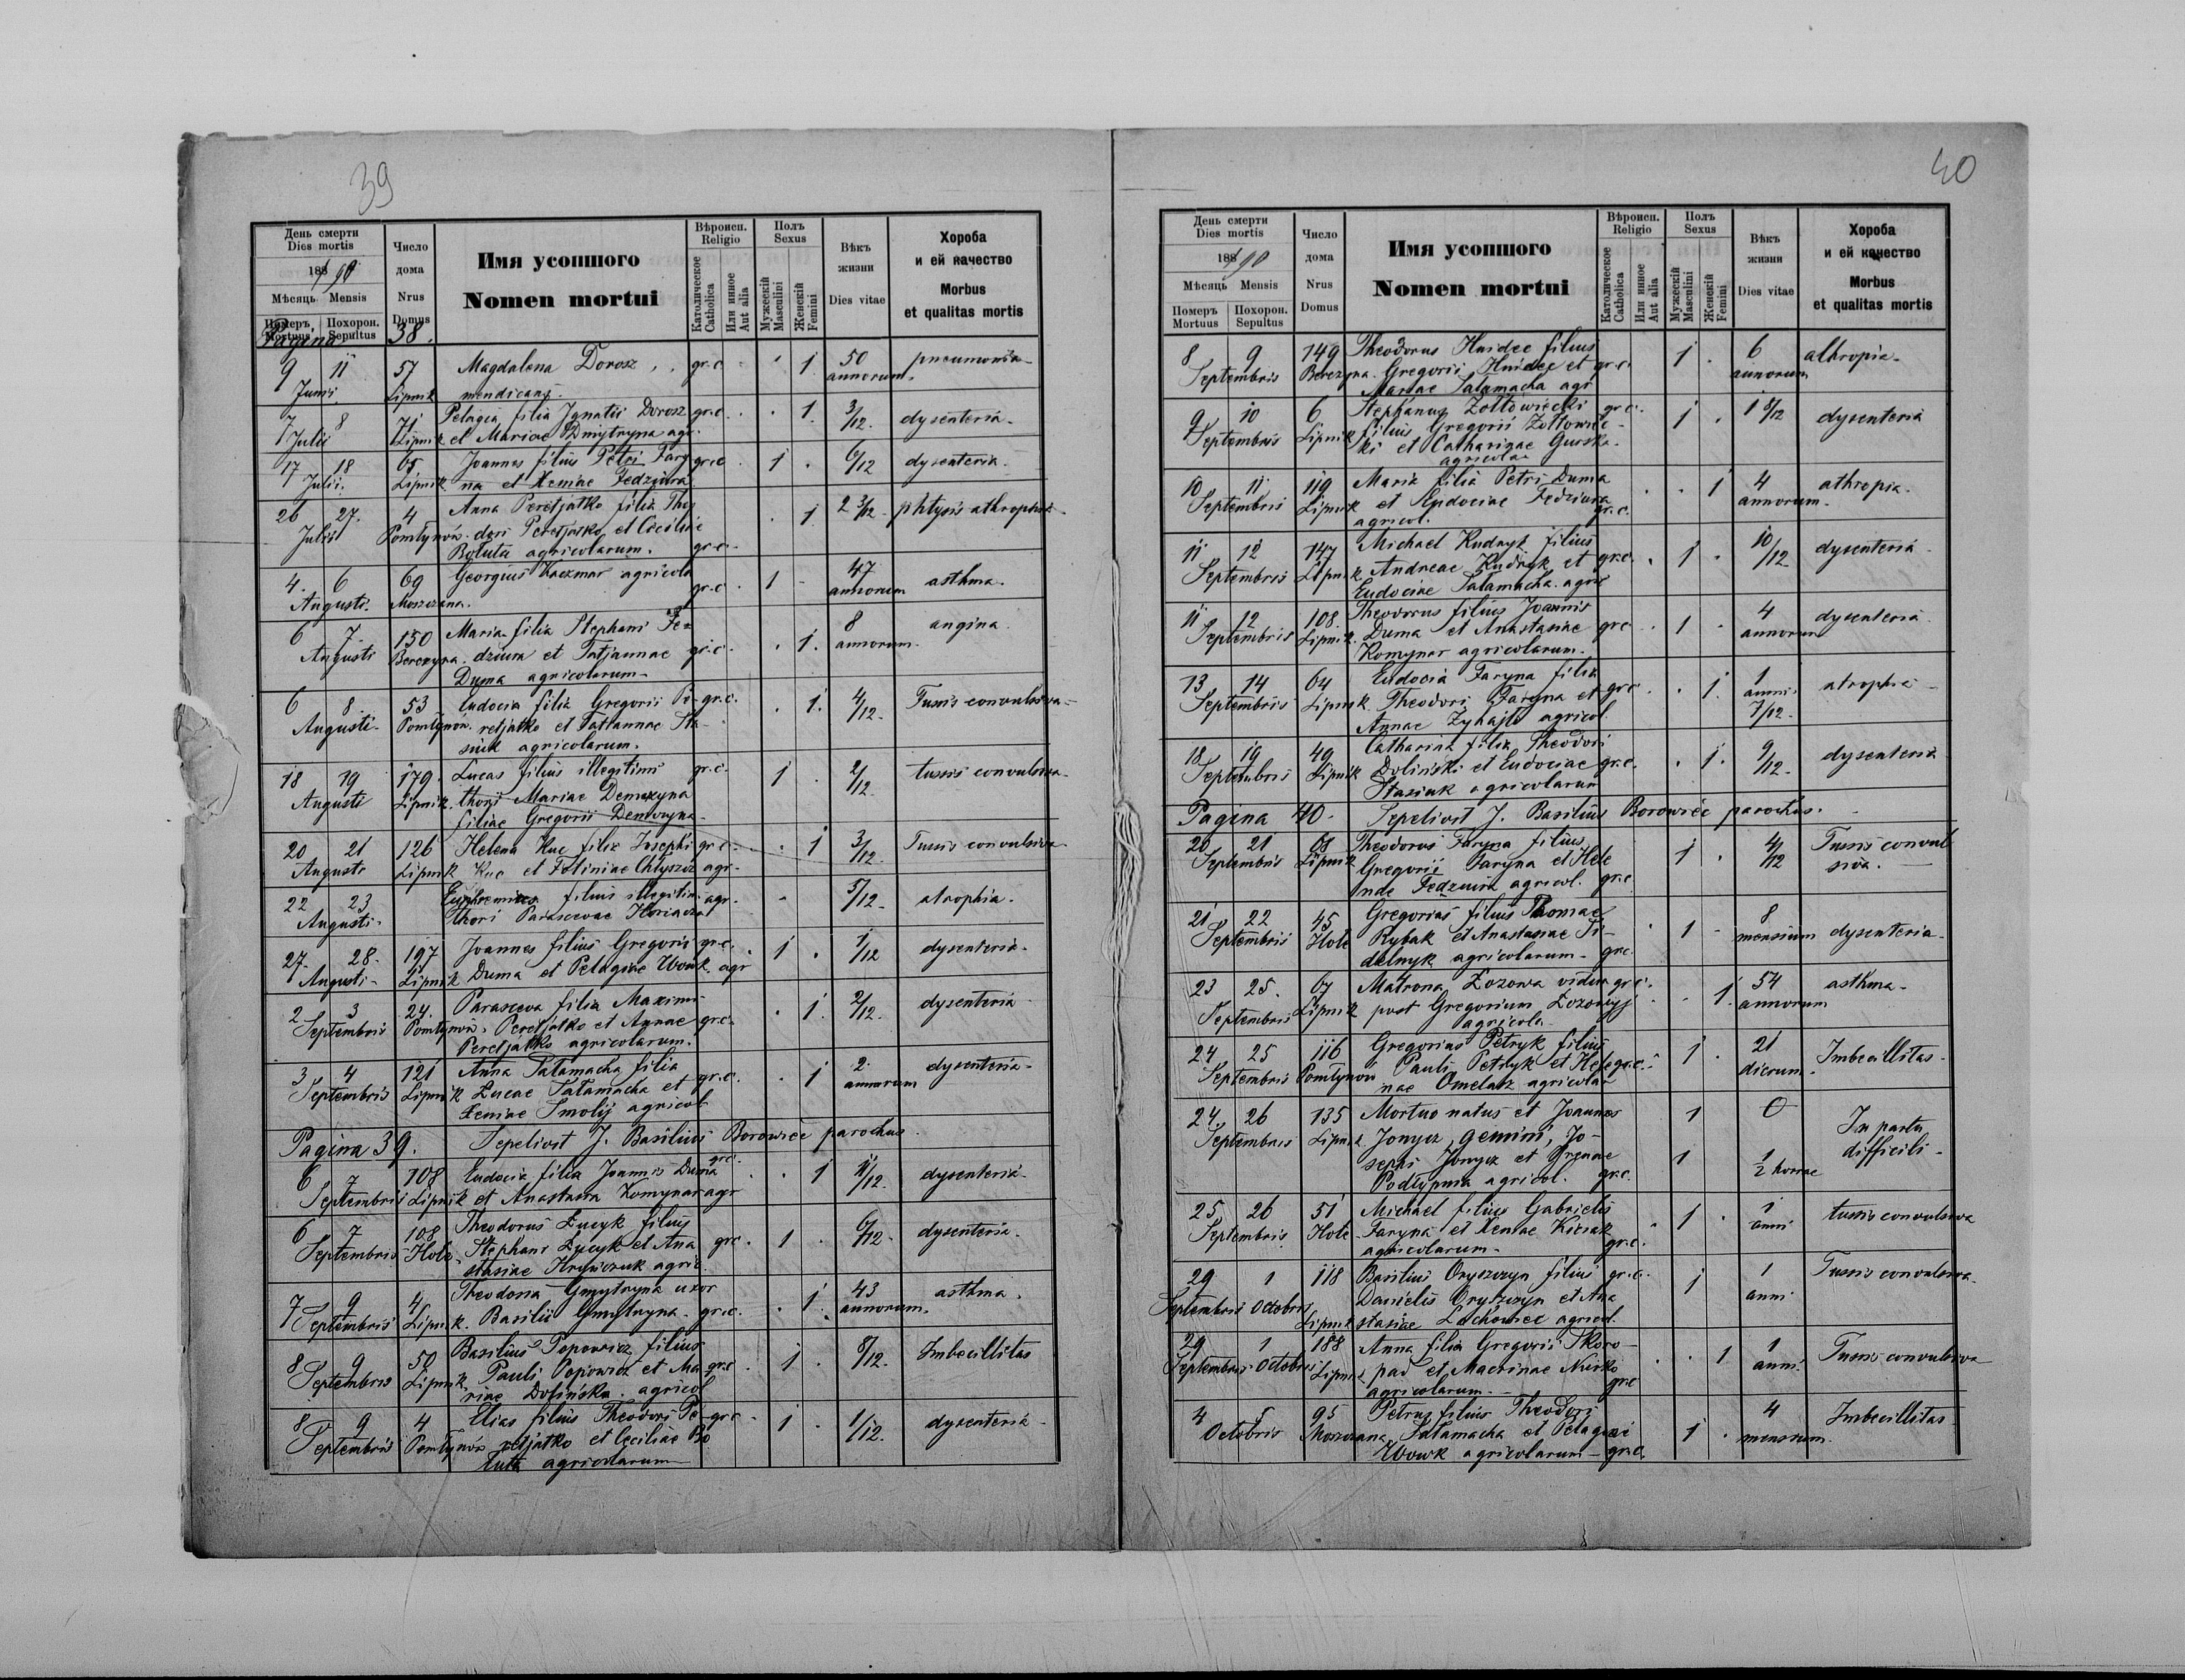 39
День смерти
Dies mortis
188 90
Мѣсяць Mensis
Померъ Mortuus
Похорон. Sepultus
Число дома
Nrus Domus
Имя усопшого
Nomen mortui
Вѣроисп.
Religio
Католическое Catholica
Или инное Aut alia
Полъ
Sexus
Мужескій Masculini
Женскій Femini
Вѣкъ жизни
Dies vitae
Хороба
и ей качество
Morbus
et qualitas mortis
Pagina 38.
9 11 57 Magdalena Dorosz gr.c. 1. 50 pneumonia
Junii. Lipnik mendicans. annorum.
7 8 71 Pelagia filia Ignatii Dorosz gr.c. 1. 3/12. dysenteria.
Julii Lipnik et Mariae Dmytryna agr.
17 18 65 Joannes filius Petri Fary gr.c. 1 6/12 dysenteria.
Julii. Lipnik na et Xeniae Fedziura
26 27. 4 Anna Peretjatko filia Theo 1 2 3/12 phtysis athrophia
Julii Pomłynów dori Peretjatko et Ceciliae
Bołuta agricolarum. gr.c.
4. 6 69 Georgius Kaczmar agricola gr.c. 1 47 asthma.
Augusti. Moszczana. annorum
6 7. 150 Maria filia Stephani Fe= 8 angina.
Augusti Berezyna. dziura et Tatjannae gr.c. 1. annorum.
Duma agricolarum
6 8. 53 Eudocia filia Gregorii Pe- gr.c. 1. 4/12. Tussis convulsiva
Augusti Pomłynów. retjatko et Tatiannae Sta-
siuk agricolarum.
18 19 179. Lucas filius illegitimi gr.c. 1 2/12. tussis convulsiva
Augusti Lipnik. thori Mariae Demczyna
filiae Gregorii Demczyna
20 21 126 Helena Kuc filia Josephi gr.c. 1 3/12. Tussis convulsiva
Augusti Lipnik Kuc et Foliniae Chłyszcz agr.
22 23 filius illegitim. agr. 5/12 atrophia.
Augusti. thori Parascevae
27. 28. 197 Joannes filius Gregorii gr.c. 1 1/12 dysenteria.
Augusti Lipnik Duma et Pelagiae Wowk agr
2 3 24. Parasceva filia Maximi 1. 2/12. dysenteria
Septembris Pomłynów. Peretjatko et Annae gr.c.
Peretjatko agricolarum.
3 4 121 Anna Sałamacha filia gr.c. 1 2. dysenteria
Septembris Lipnik Lucae Sałamacha et annorum
Xeniae Smolij agricol
Pagina 39. Sepelivit J. Basilius Borowiec parochus.
6 7 108 Eudocia filia Joannis Duma gr.c. 1 11/12. dysenteria
Septembris Lipnik et Anastasia Komynar agr
6 7 108 Theodorus Łucyk filius 1 6/12. dysenteria.
Septembris Hole Stephani Łucyk et Ana gr.c.
stasiae Hryńczuk agric.
7 9 4 Theodosia Gmytryna uxor 1. 43 asthma.
Septembris Lipnik. Basilii Gmytryna. gr.c. annorum.
8 9 50 Basilius Popowicz filius 1 8/12. Imbecillitas
Septembris Lipnik Pauli Popowicz et Ma gr.c
riae Dolińska. agricol
8 9 4 Elias filius Theodori Pe gr.c. 1 1/12. dysenteria
Septembris Pomłynów retjatko et Ceciliae Bo
łuta agricolarum
40
День смерти
Dies mortis
188 90
Мѣсяць Mensis
Померъ Mortuus
Похорон. Sepultus
Число дома
Nrus Domus
Имя усопшого
Nomen mortui
Вѣроисп.
Religio
Католическое Catholica
Или инное Aut alia
Полъ
Sexus
Мужескій Masculini
Женскій Femini
Вѣкъ жизни
Dies vitae
Хороба
и ей качество
Morbus
et qualitas mortis
8 9 149 Theodorus Hnidec filius 1 6 athropia.
Septembris Berezyna Gregorii Hnidec et gr.c. annorum
Mariae Sałamacha agr
9 10 6 Stephanus Żołtowiecki gr.c. 1 1 8/12 dysenteria
Septembris Lipnik filius Gregorii Żołtowiec-
ki et Catharinae Gurska
agricolae
10 11 119 Maria filia Petri Duma 1 4 athropia.
Septembris Lipnik et Eudociae Fedziura annorum.
agricol. gr.c.
11 12 147 Michael Kudryk filius 1 10/12 dysenteria
Septembris Lipnik Andreae Kudryk et gr.c.
Eudociae Sałamacha. agric
11 12 108. Theodorus filius Joannis 1 4 dysenteria.
Septembris Lipnik. Duma et Anastasiae gr.c annorum
Komynar agricolarum.
13 14 64 Eudocia Faryna filia 1. 1 atrophia
Septembris Lipnik Theodori Faryna et gr.c anni
Annae Zyhajło agricol. 7/12.
18 19 49 Catharina filia Theodori 1. 9/12. dysenteria
Septembris Lipnik Doliński et Eudociae gr.c.
Stasiuk agricolarum
Pagina 40. Sepelivit J. Basilius Borowiec parochus.
20 21 68 Theodorus Faryna filius 1 4/12 Tussis convul
Septembris Lipnik Gregorii Faryna et Hele siva.
nae Fedziura agricol. gr.c
21 22 45 Gregorius filius Thomae 1 8 dysenteria
Septembris Hole Rybak et Anastasiae Si- mensium
delnyk agricolarum gr.c.
23 25. 67 Matrona Łozowa vidua gr.c. 1. 54 asthma
Septembris Lipnik post Gregorium Łozowyj annorum
agricola
24 25 116 Gregorius Petryk filius 1 21 Imbecillitas
Septembris Pomłynów Pauli Petryk et Hele gr.c. dierum.
nae Omelasz agricolar
24. 26 135 Mortuo natus et Joannes 1 0 In partu
Septembris Lipnik Jonycz, gemini, Jo- difficili
sephi Jonycz et Irenae 1 1/2 horae
Podłypna agricol. gr.c.
25 26 51 Michael filius Gabrielis 1 1 tussis convulsiva
Septembris. Hole Faryna et Xeniae Kiciak anni
agricolarum. gr.c.
29 1 118 Basilius Oryszczyn filius gr.c. 1 1 Tussis convulsiva
Septembris Octobris Lipnik Danielis Oryszczyn et Ana anni
stasiae Lachowiec agricol.
29 1 188 Anna filia Gregorii Skoro- 1 1 Tussis convulsiva
Septembris Octobris Lipnik pad et Macrinae Nurko anni.
agricolarum. gr.c
4 5 95 Petrus filius Theodori 1 4 Imbecillitas
Octobris Moszczana Sałamacha et Pelagiae mensium.
Wowk agricolarum gr.c.